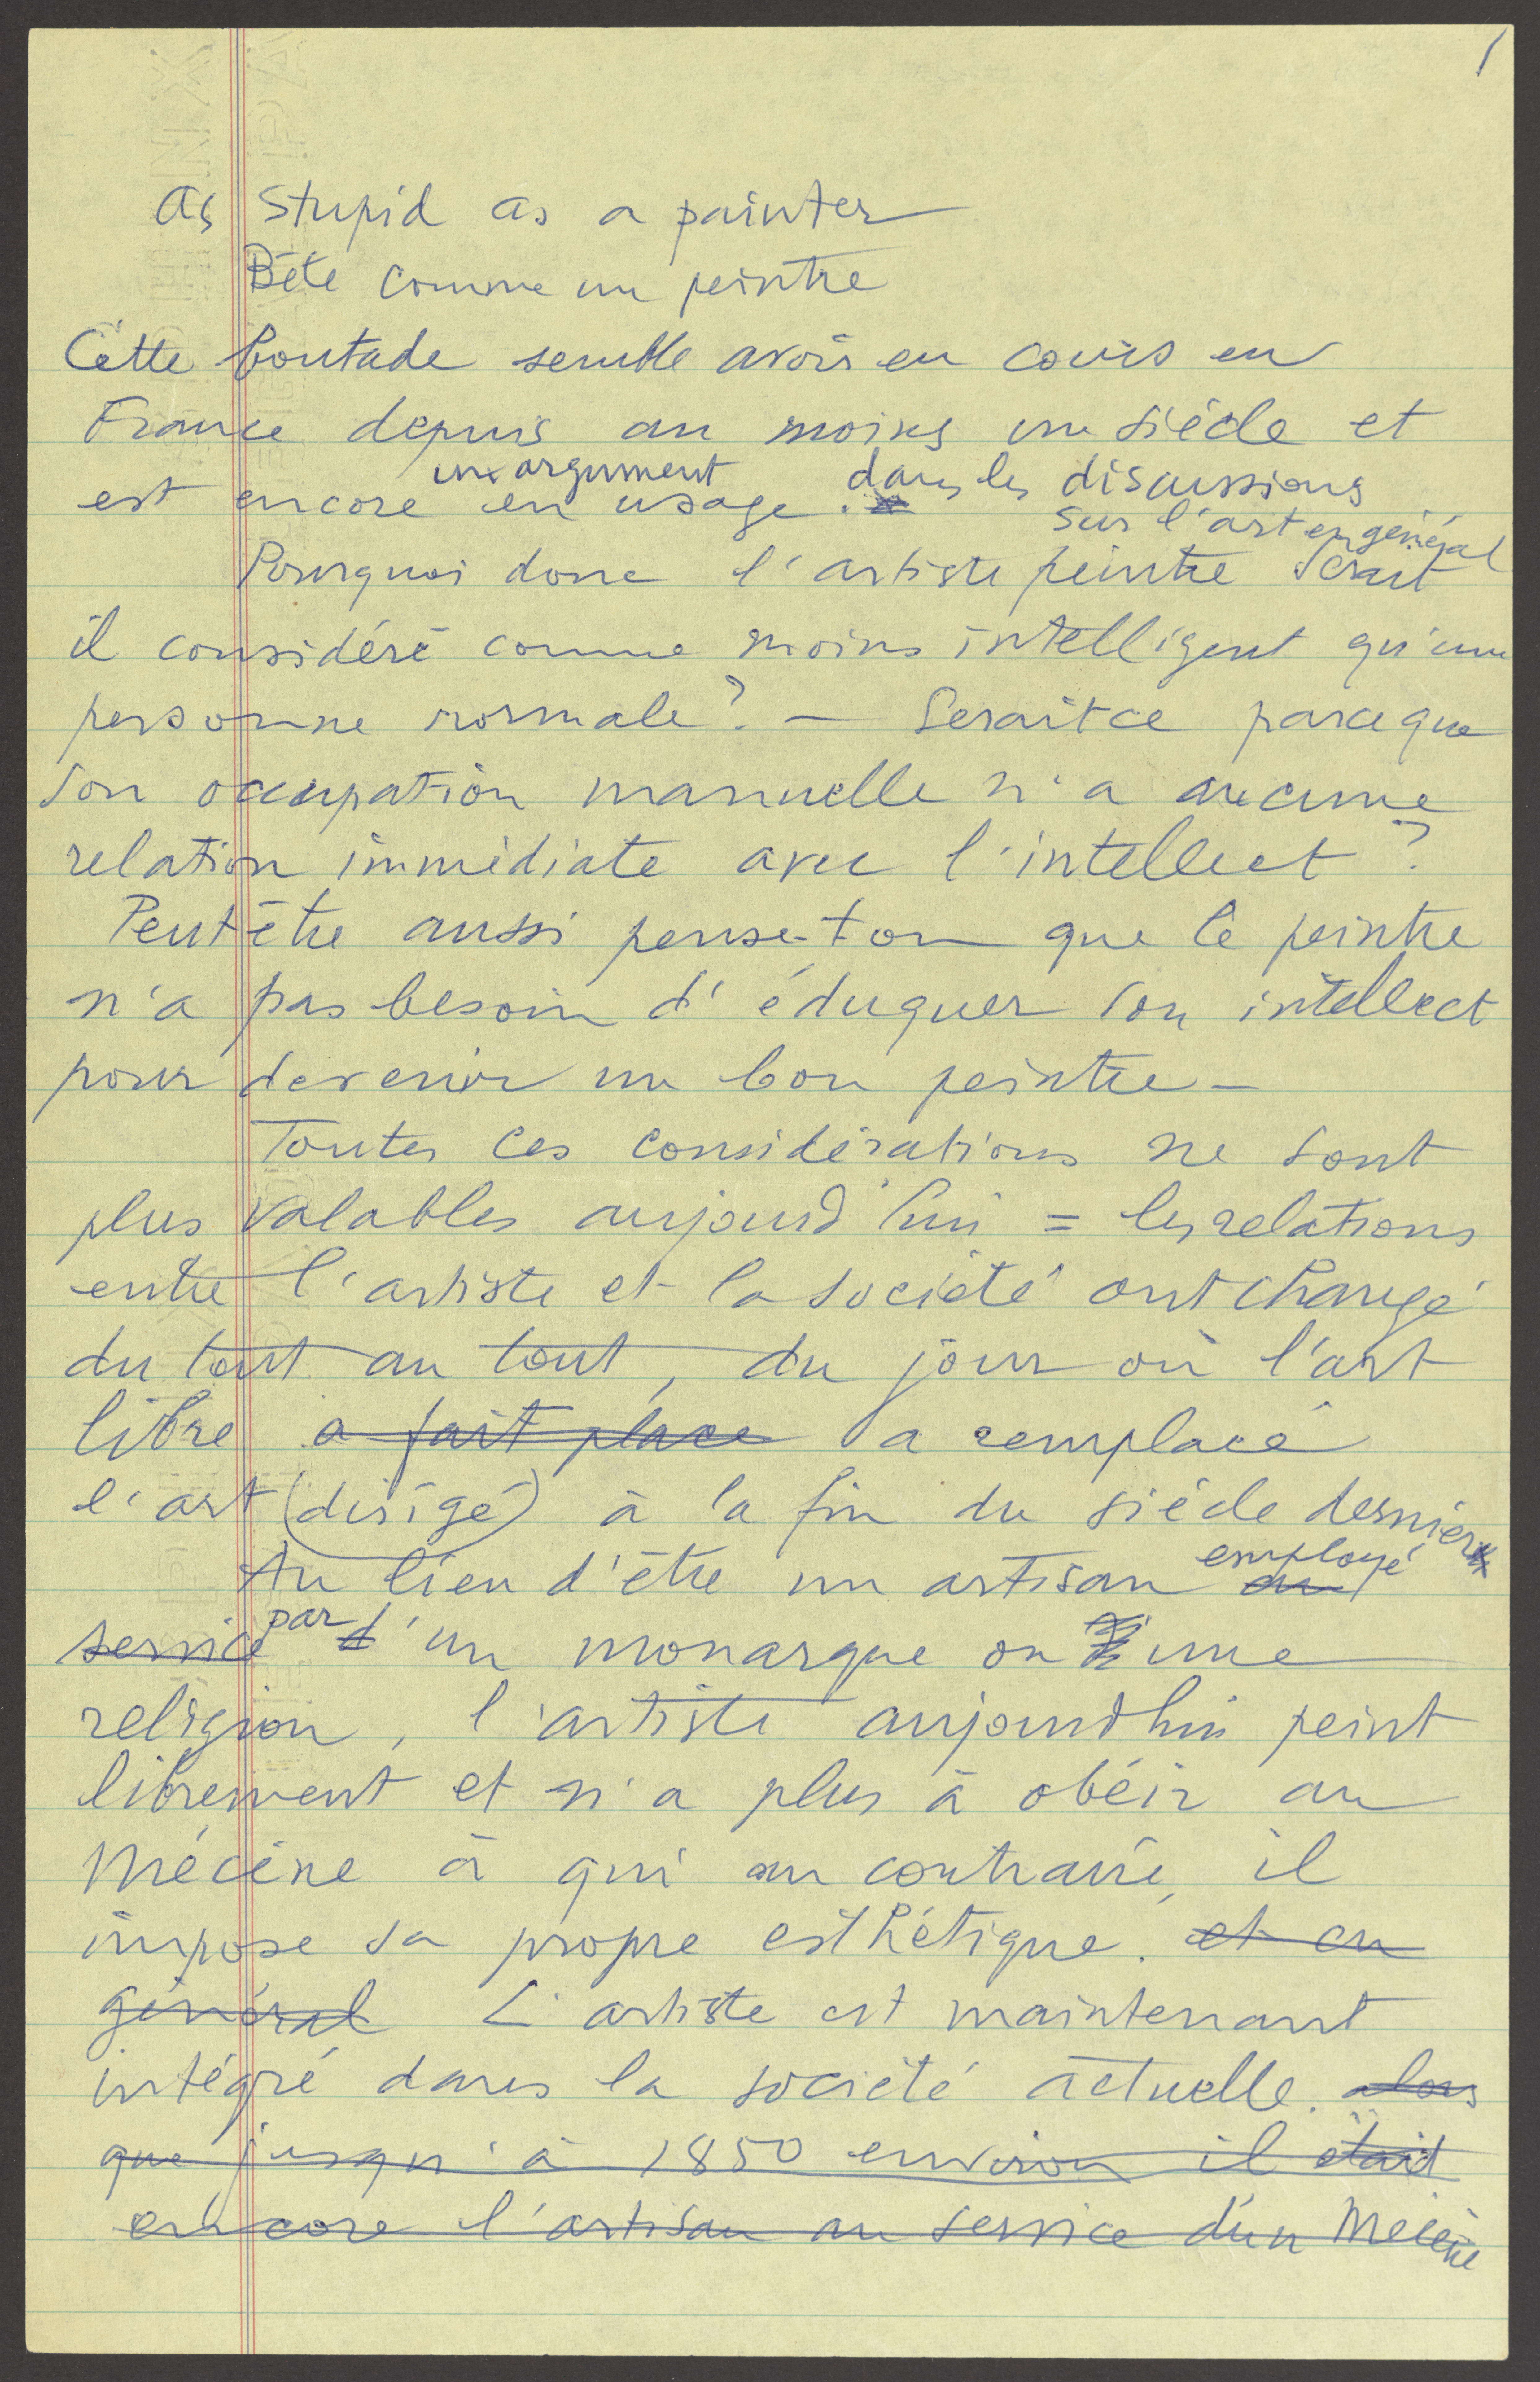 1
As Stupid as a painter
Bête comme un peintre
Cette boutade semble avoir eu cours en
France depuis au moins un siècle et
un argument
est encore en usage. dans les discussions
sur l'art en général
Pourquoi donc l'artiste peintre serait
il considéré comme moins intelligent qu'une
personne normale? — Serait ce parceque
son occupation manuelle n'a aucune
relation immédiate avec l'intellect?
Peut être aussi pense-t on que le peintre
n'a pas besoin d'éduquer son intellect
pour devenir un bon peintre —
Toutes ces considérations ne sont
plus valables aujourd'hui = les relations
entre l'artiste et la société ont changé
du tout au tout, du jour où l'art
libre a fait place a remplacé
l'art (dirigé) à la fin du siècle dernier
employé
Au lieu d'être un artisan au
par
service d'un monarque ou une
religion, l'artiste aujourd'hui peint
librement et n'a plus à obéir au
Mécène à qui au contraire, il
impose sa propre esthétique. et en
général L'artiste est maintenant
intégré dans la société actuelle. alors
que jusqu'à 1850 environ il était
encore l'artisan au service d'un Mécène